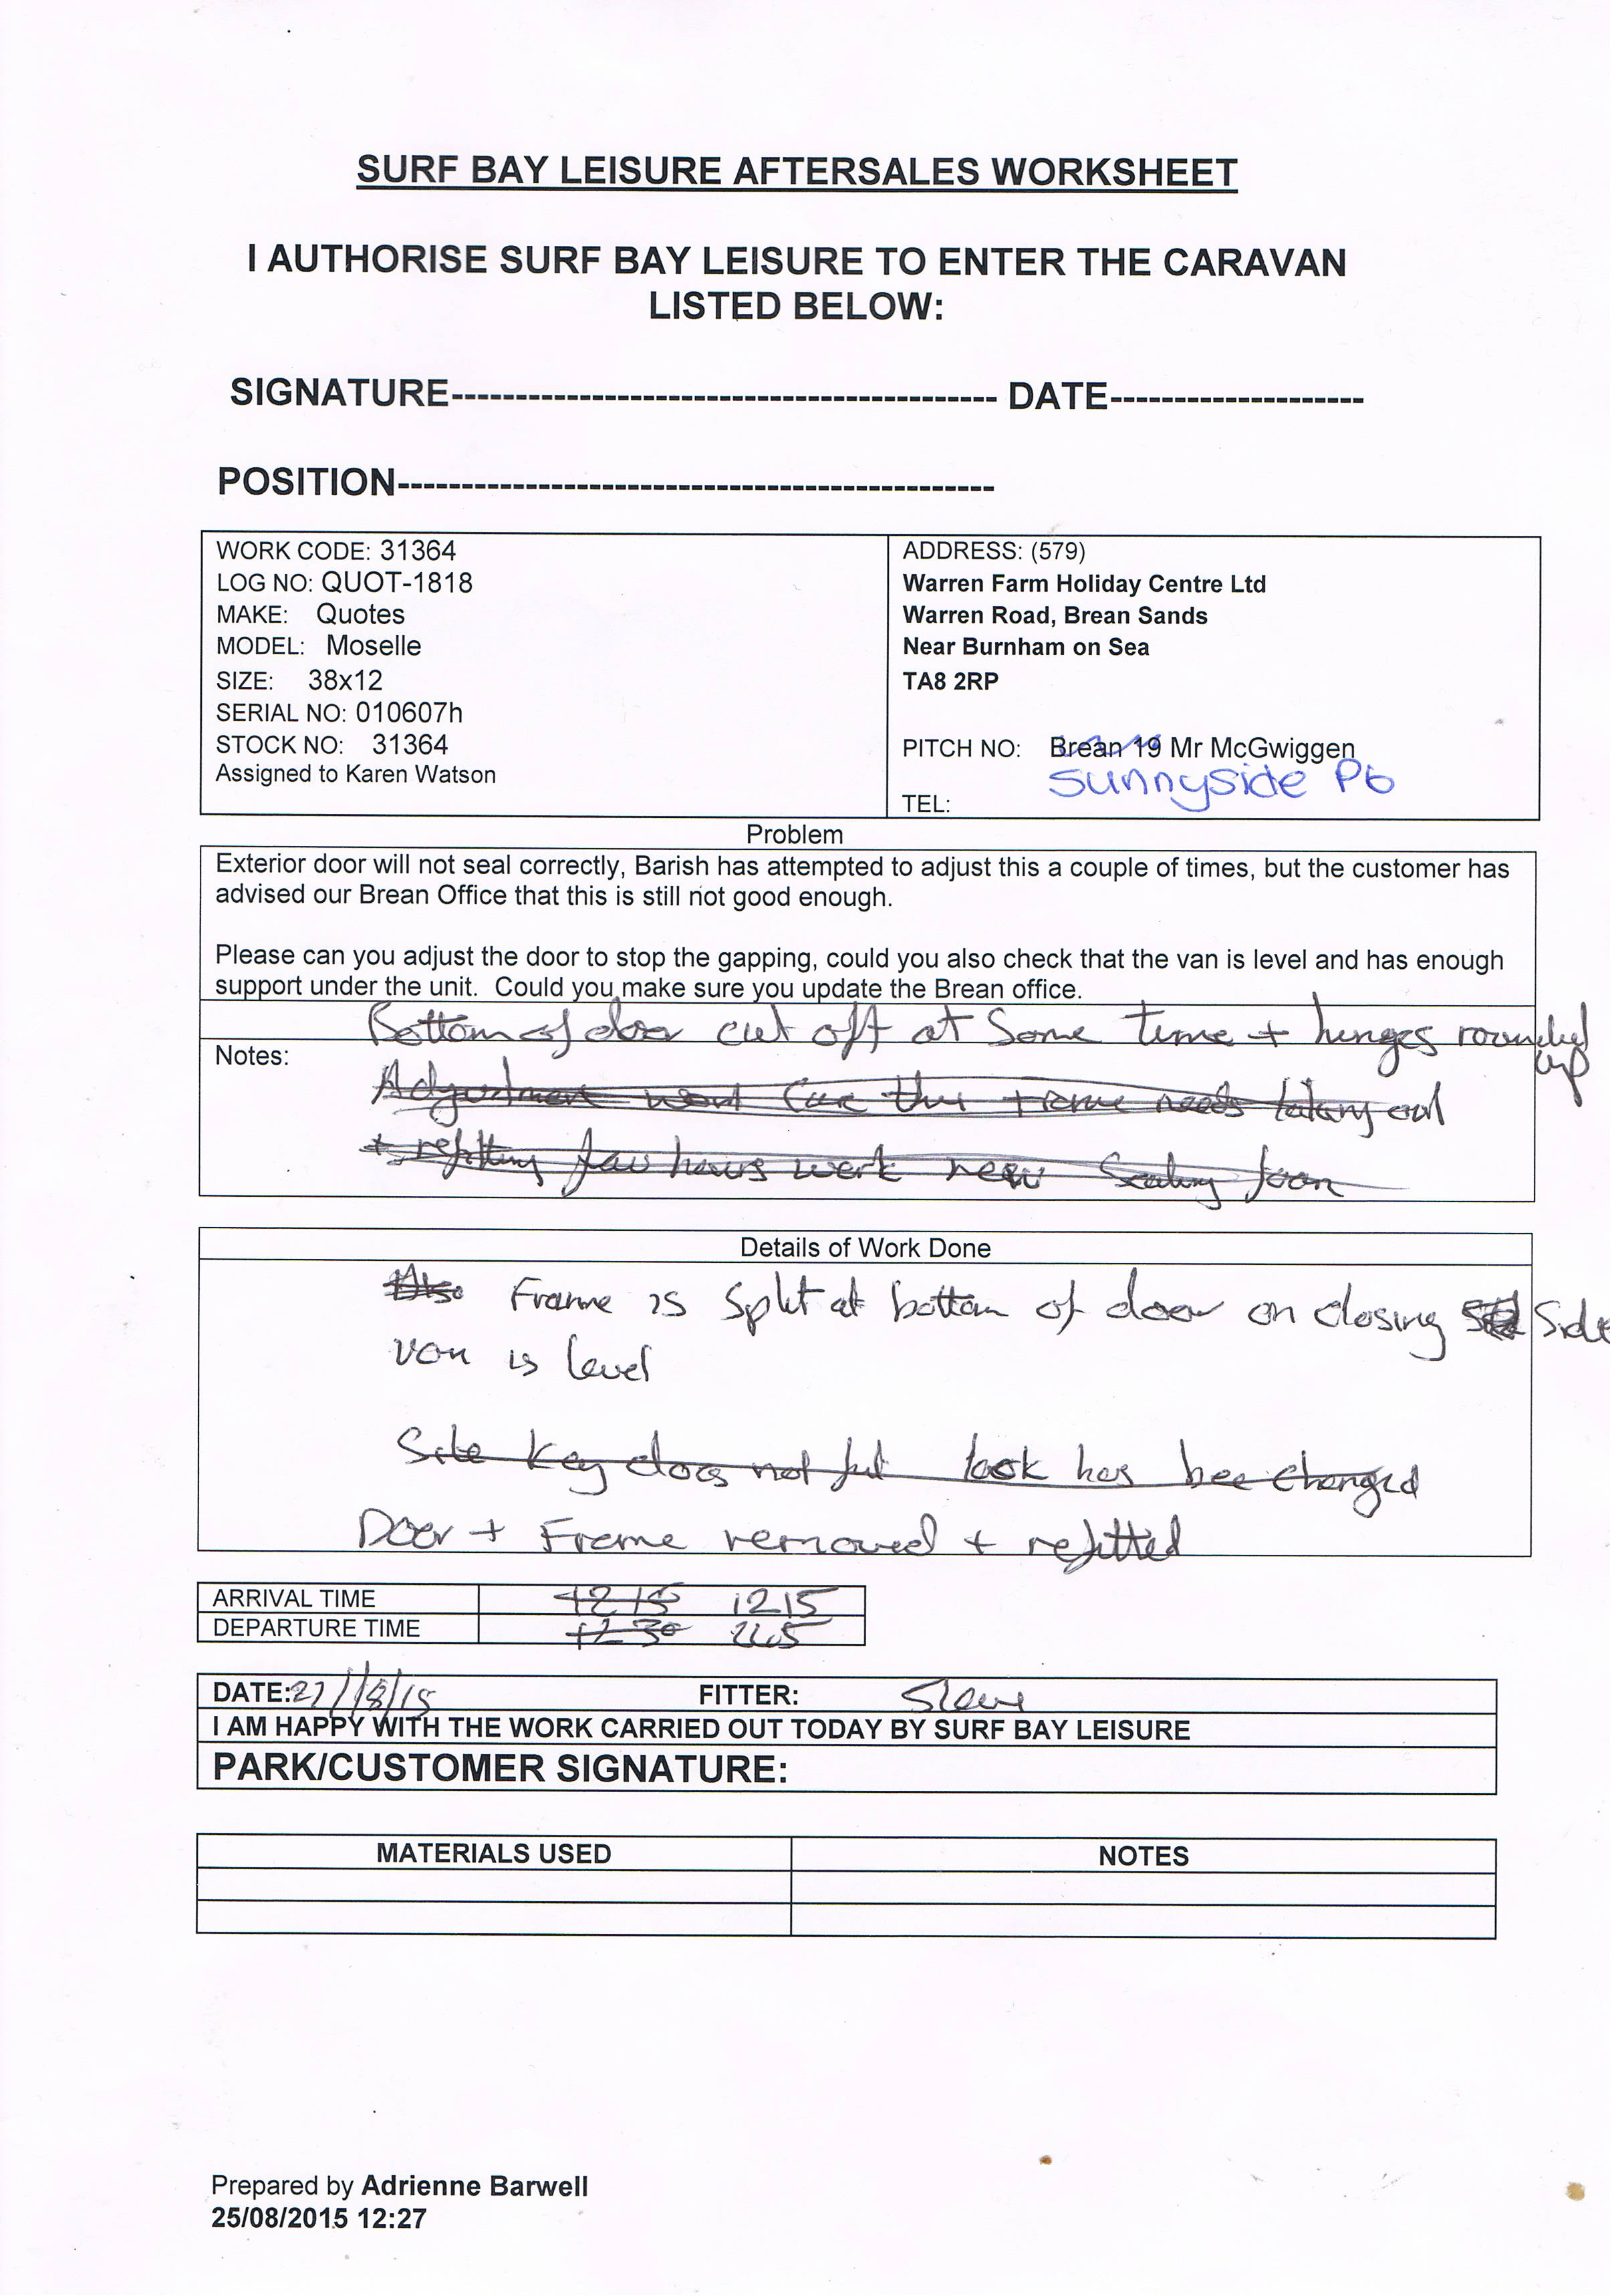 SURF BAY LEISURE AFTERSALES WORKSHEET
I AUTHORISE SURF BAY LEISURE TO ENTER THE CARAVAN
LISTED BELOW:
SIGNATURE------------------------------------------- DATE--------------------
POSITION-----------------------------------------------
WORK CODE: 31364
LOG NO: QUOT-1818
MAKE: Quotes
MODEL: Moselle
SIZE: 38x12
SERIAL NO: 010607h
STOCK NO: 31364
Assigned to Karen Watson
ADDRESS: (579)
Warren Farm Holiday Centre Ltd
Warren Road, Brean Sands
Near Burnham on Sea
TA8 2RP
PITCH NO: Brean 19 Mr McGwiggen
Sunnyside P6
TEL:
Problem
Exterior door will not seal correctly, Barish has attempted to adjust this a couple of times, but the customer has
advised our Brean Office that this is still not good enough.
Please can you adjust the door to stop the gapping, could you also check that the van is level and has enough
support under the unit. Could you make sure you update the Brean office.
Bottom of door cut off at some time + hinges rounded
up
Notes:
Adjustment wont cure this frame needs taking out
+ refitting few hours work new sealing foam
Details of Work Done
Also Frame is split at bottom of door on closing side
van is level
Site key does not fit lock has bee changed
Door + Frame removed + refitted
ARRIVAL TIME 1215 1215
DEPARTURE TIME 1230
DATE: 27/8/15 FITTER: Steve
I AM HAPPY WITH THE WORK CARRIED OUT TODAY BY SURF BAY LEISURE
PARK/CUSTOMER SIGNATURE:
MATERIALS USED NOTES
Prepared by Adrienne Barwell
25/08/2015 12:27